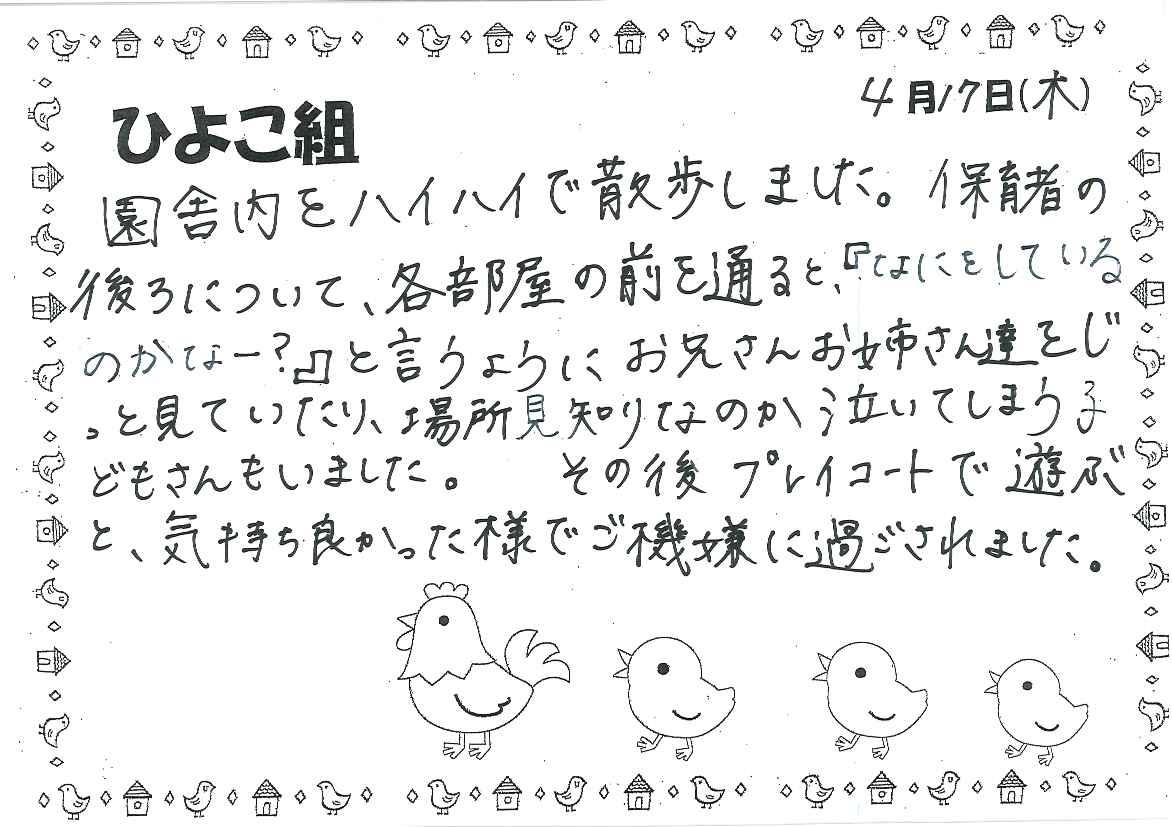 4月17日(木)
ひよこ組
園舎内をハイハイで散歩しました。保育者の
後ろについて、各部屋の前を通ると、『なにをしている
のかなー?』と言うようにお兄さんお姉さん達をじ
っと見ていたり、場所見知りなのか泣いてしまう子
どもさんもいました。 その後プレイコートで遊ぶ
と、気持ち良かった様でご機嫌に過ごされました。